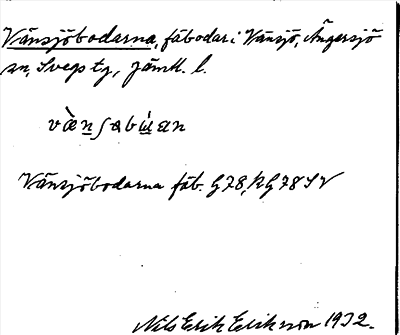 Vänsjöbodarna, fäbodar i Vänsjö, Ängersjö
sn, Svegs tg, Jämtl. l.
væ̀nʃabɯ́an
Vänsjöbodarna fäb. G78, KG 78 SV
Nils Erik Erikson 1932.